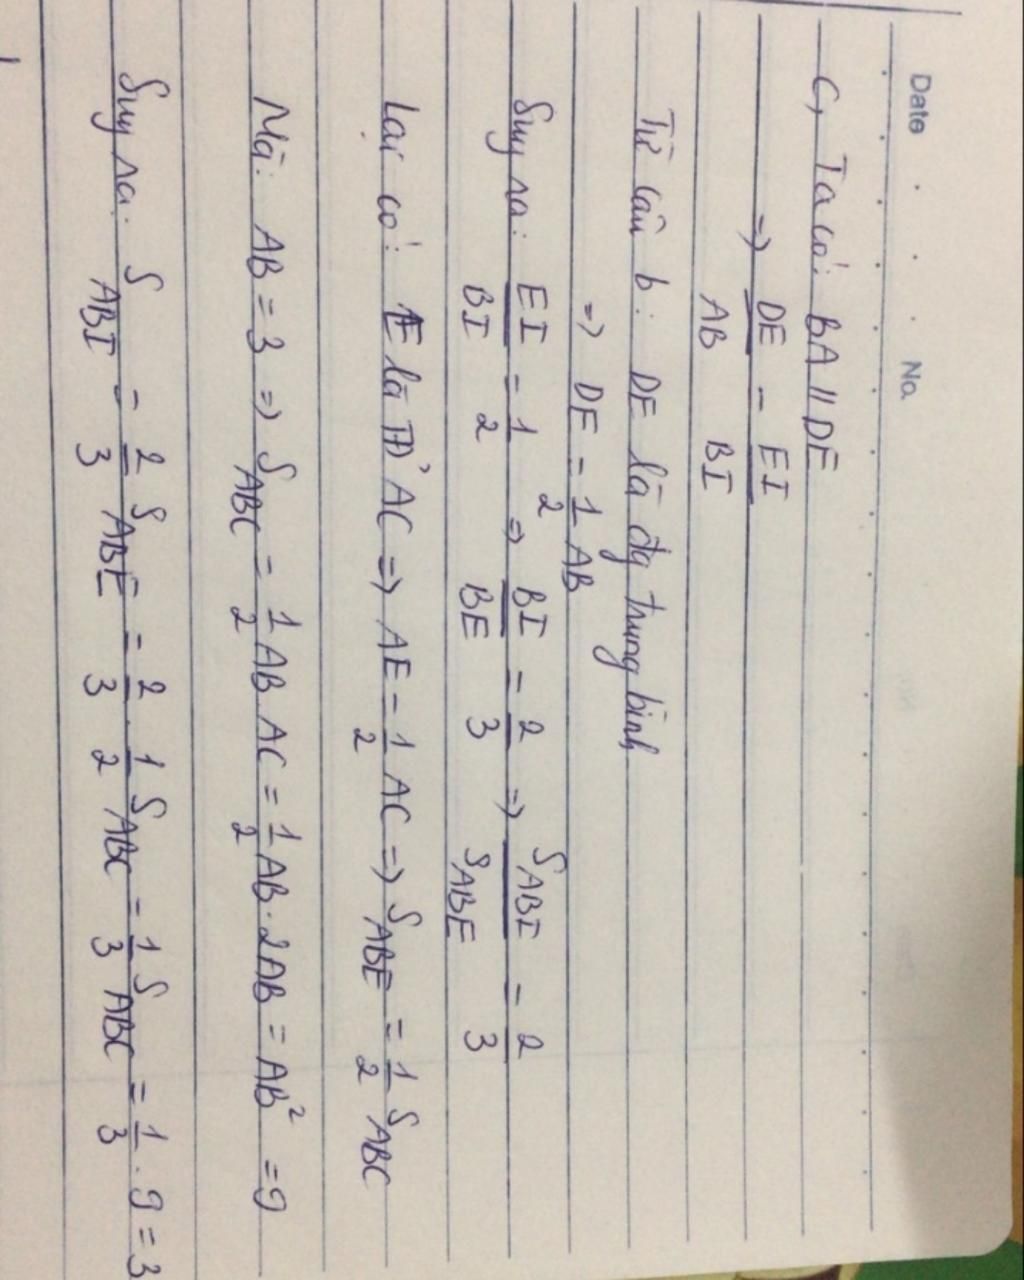 Date No.
C, Ta có: BA // DE
=> DE/AB = EI/BI
Từ câu b: DE là đg trung bình
=> DE = 1/2 AB
Suy ra: EI/BI = 1/2 => BI/BE = 2/3 => S ABI/S ABE = 2/3
Lại có: E là TĐ' AC => AE = 1/2 AC => S ABE = 1/2 S ABC
Mà: AB = 3 => S ABC = 1/2 AB AC = 1/2 AB. 2AB = AB² = 9
Suy ra: S ABI = 2/3 S ABE = 2/3 . 1/2 S ABC = 1/3 S ABC = 1/3 . 9 = 3